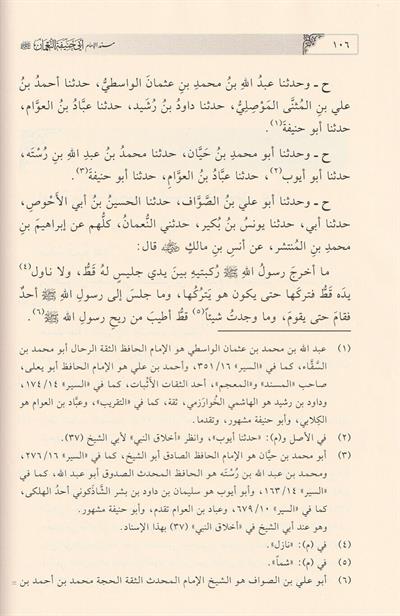 ١٠٦
مسند الإمام أبي حنيفة النعمان
ح ـ وحدثنا عبدُ الله بنُ محمدِ بنِ عثمانَ الواسطيُّ، حدثنا أحمدُ بنُ
علي بنِ المُثنَّى المَوْصِليُّ، حدثنا داودُ بنُ رُشَيد، حدثنا عبَّادُ بنُ العوَّام،
حدثنا أبو حنيفةَ(١).
ح ـ وحدثنا أبو محمدِ بنُ حَيَّان، حدثنا محمدُ بنُ عبدِ اللهِ بنِ رُسْتَه،
حدثنا أبو أيوب(٢)، حدثنا عبَّادُ بنُ العوامِ، حدثنا أبو حنيفةَ(٣).
ح ـ وحدثنا أبو علي بنُ الصَّوَّاف، حدثنا الحسينُ بنُ أبي الأَحْوصِ،
حدثنا أبي، حدثنا يونسُ بنُ بُكير، حدثني النُّعمانُ، كلُّهم عن إبراهيمَ بنِ
محمدِ بنِ المُنتشر، عن أنسِ بنِ مالكٍ ﷺ قال:
ما أخرجَ رسولُ اللهِ ﷺ رُكبتيهِ بينَ يدي جليسٍ لهُ قطُّ، ولا ناول(٤)
يدَه قَطُّ فتركَها حتى يكون هو يَتركُها، وما جلسَ إلى رسولِ اللهِ ﷺ أحدٌ
فقامَ حتى يقومَ، وما وجدتُ شيئاً(٥) قطُّ أطيبَ من ريحِ رسولِ الله ﷺ(٦).
(١) عبد الله بن محمد بن عثمان الواسطي هو الإمام الحافظ الثقة الرحال أبو محمد بن
السَّقَّاء، كما في «السير» ١٦/ ٣٥١، وأحمد بن علي هو الإمام الحافظ أبو يعلى،
صاحب «المسند» و«المعجم»، أحد الثقات الأثبات، كما في «السير» ١٤/ ١٧٤،
وداود بن رشيد هو الهاشمي الخُوارَزمي، ثقة، كما في «التقريب»، وعبَّاد بن العوام هو
الكِلابي، وأبو حنيفة مشهور، وتقدما.
(٢) في الأصل و(م): «حدثنا أيوب»، وانظر «أخلاق النبي» لأبي الشيخ (٣٧).
(٣) أبو محمد بن حيَّان هو الإمام الحافظ الصادق أبو الشيخ، كما في «السير» ١٦/ ٢٧٦،
ومحمد بن عبد الله بن رُسْتَه هو الحافظ المحدث الصدوق أبو عبد الله، كما في
«السير» ١٤/ ١٦٣، وأبو أيوب هو سليمان بن داود بن بشر الشَّاذكوني أحدُ الهلكى،
كما في «السير» ١٠/ ٦٧٩، وعباد بن العوام تقدم، وأبو حنيفة مشهور.
وهو عند أبي الشيخ في «أخلاق النبي» (٣٧) بهذا الإسناد.
(٤) في (م): «نازل».
(٥) في (م): «شماً».
(٦) أبو علي بن الصواف هو الشيخ الإمام المحدث الثقة الحجة محمد بن أحمد بن =